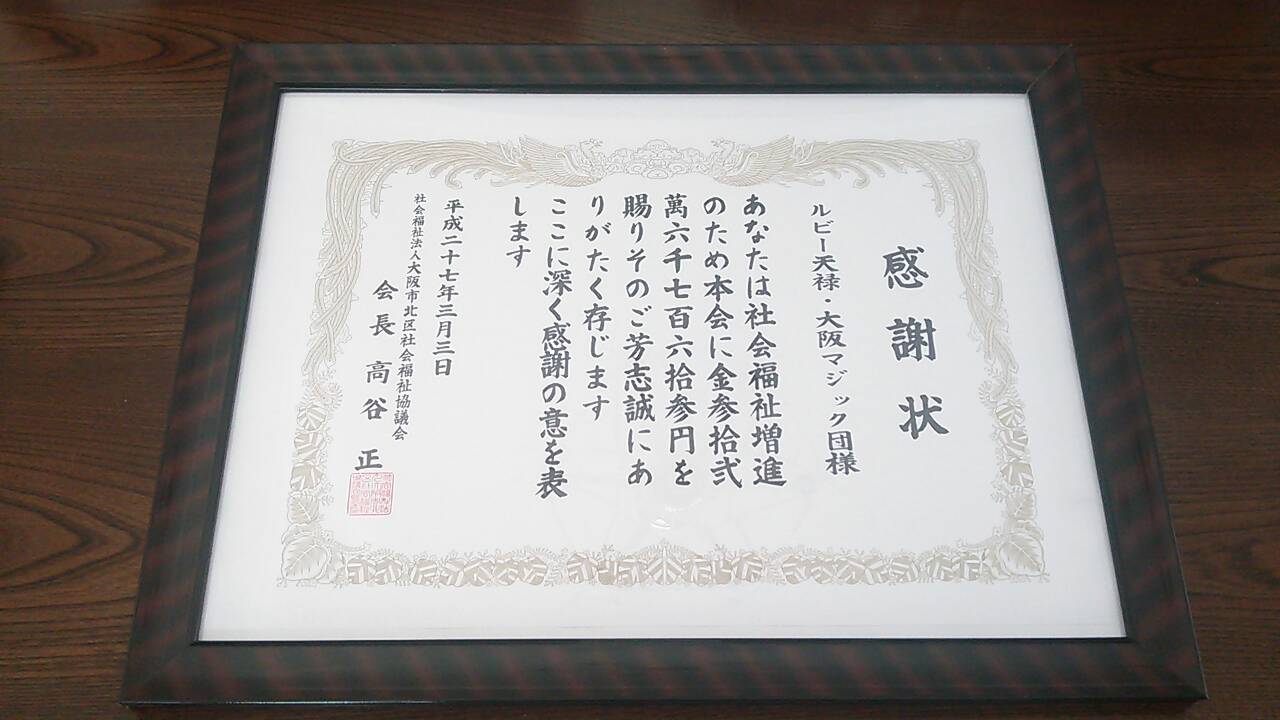 感謝状
ルビー天禄・大阪マジック団様
あなたは社会福祉増進
のため本会に金参拾弐
萬六千七百六拾参円を
賜りそのご芳志誠にあ
りがたく存じます
ここに深く感謝の意を表
します
平成二十七年三月三日
社会福祉法人大阪市北区社会福祉協議会
会長 高谷 正